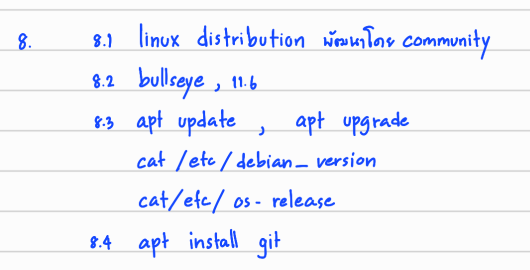 8. 8.1 linux distribution พัฒนาโดย community
8.2 bullseye , 11.6
8.3 apt update , apt upgrade
cat /etc/debian_version
cat/etc/os-release
8.4 apt install git